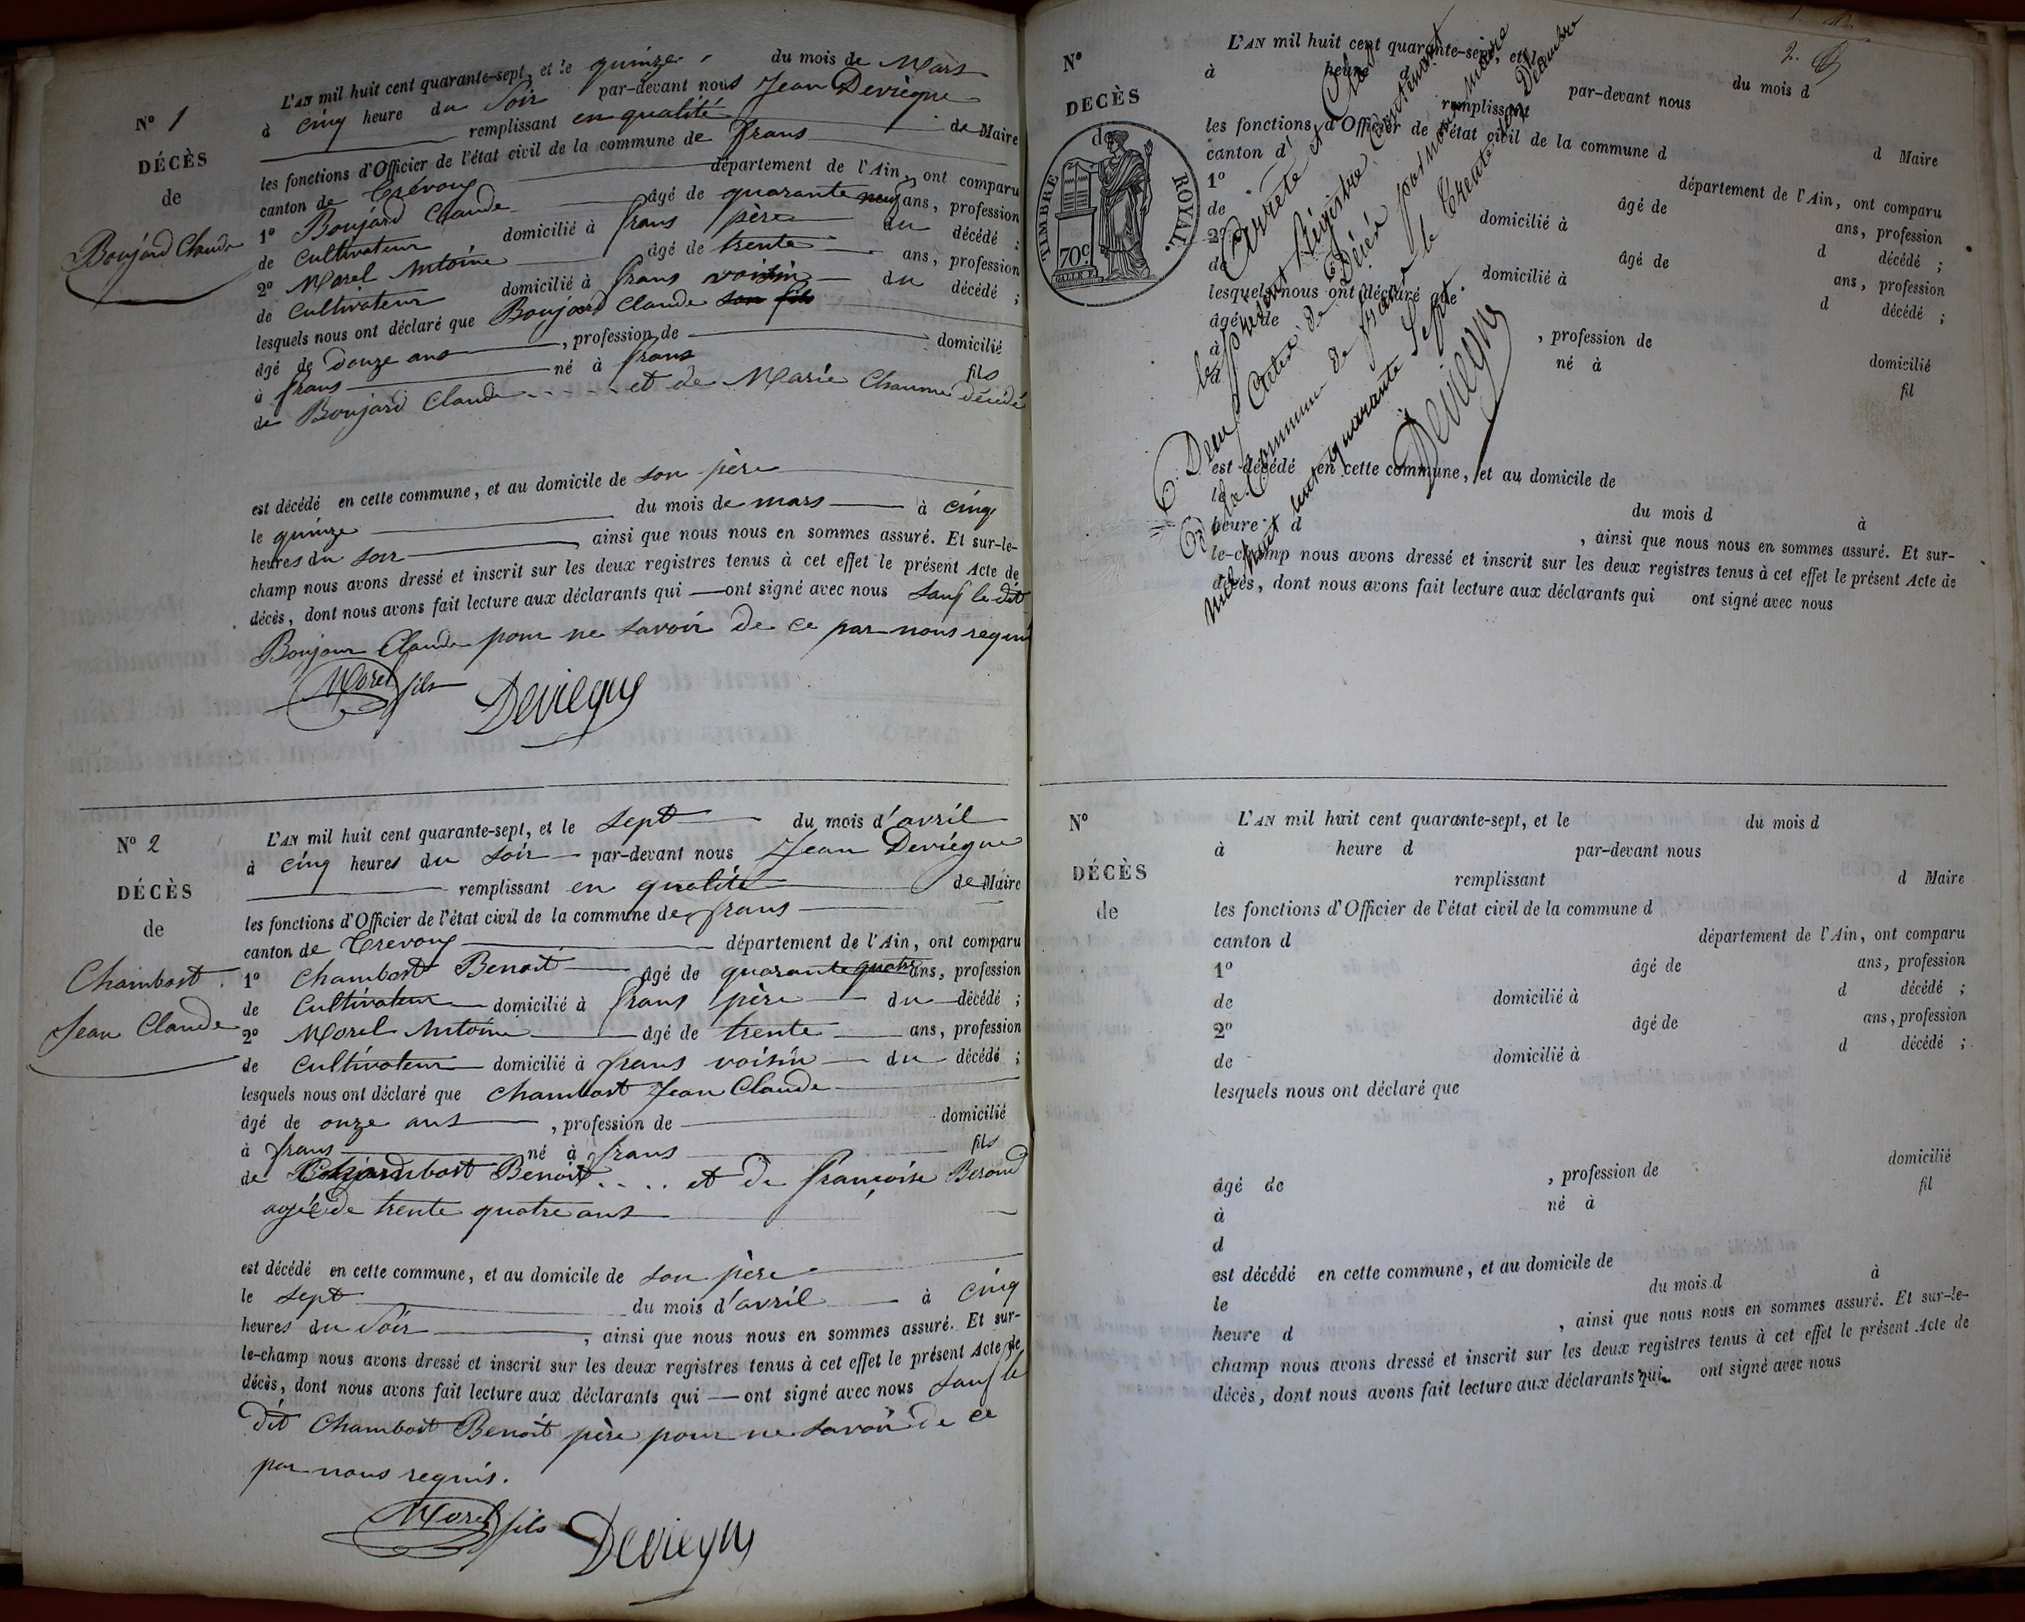 N° 1
DÉCÈS
de
Boujard Claude
L'AN mil huit cent quarante-sept, et le quinze du mois de Mars
à cinq heure du Soir par-devant nous Jean Deviègue
remplissant en qualité de Maire
les fonctions d'Officier de l'état civil de la commune de frans
canton de Trévoux département de l'Ain, ont comparu
1° Boujard Claude âgé de quarante neuf ans, profession
de Cultivateur domicilié à frans père du décédé ;
2° Morel Antoine âgé de trente ans, profession
de Cultivateur domicilié à frans voisin du décédé ;
lesquels nous ont déclaré que Boujard Claude son fils
âgé de douze ans , profession de domicilié
à frans né à frans fils
de Boujard Claude . . . . et de Marie Chaumé décédé
est décédé en cette commune, et au domicile de son père
le quinze du mois de mars à cinq
heures du soir , ainsi que nous nous en sommes assuré. Et sur-le-
champ nous avons dressé et inscrit sur les deux registres tenus à cet effet le présent Acte de
décès, dont nous avons fait lecture aux déclarants qui ont signé avec nous sauf le dit
Boujour Claude pour ne savoir de ce par nous requis
Morel fils Deviegue
N° 2
DÉCÈS
de
Chambost
Jean Claude
L'AN mil huit cent quarante-sept, et le sept du mois d'avril
à cinq heures du soir par-devant nous Jean Deviégue
remplissant en qualité de Maire
les fonctions d'Officier de l'état civil de la commune de frans
canton de Trevoux département de l'Ain, ont comparu
1° Chambost Benoit âgé de quarante quatre ans, profession
de Cultivateur domicilié à frans père du décédé ;
2° Morel Antoine âgé de trente ans, profession
de Cultivateur domicilié à frans voisin du décédé ;
lesquels nous ont déclaré que Chambost Jean Claude
âgé de onze ans , profession de domicilié
à frans né à frans fils
de Chambost Benoit . . . . et de françoise Beroud
agée de trente quatre ans
est décédé en cette commune, et au domicile de son père
le sept du mois d'avril à cinq
heures du Soir , ainsi que nous nous en sommes assuré. Et sur-
le-champ nous avons dressé et inscrit sur les deux registres tenus à cet effet le présent Acte de
décès, dont nous avons fait lecture aux déclarants qui ont signé avec nous sauf le
dit Chambost Benoit père pour ne savoir de ce
par nous requis.
Morel fils Deviegue
2.
N°
DECÈS
de
TIMBRE ROYAL.
70c
L'AN mil huit cent quarante-sept, et le du mois d
à heure d par-devant nous
remplissant d Maire
les fonctions d'Officier de l'état civil de la commune d
canton d département de l'Ain, ont comparu
1° âgé de ans, profession
de domicilié à d décédé ;
2° âgé de ans, profession
de domicilié à d décédé ;
lesquels nous ont déclaré que
âgé de , profession de domicilié
à né à fil
d
est décédé en cette commune, et au domicile de
le du mois d à
heure d , ainsi que nous nous en sommes assuré. Et sur-
le-champ nous avons dressé et inscrit sur les deux registres tenus à cet effet le présent Acte de
décès, dont nous avons fait lecture aux déclarants qui ont signé avec nous
Arrêté et Clos
le présent Régistre Contenant
Deux Actes de Décès par nous maire
De la Commune de frans le Trente un Décembre
mil huit cent quarante Sept
Deviegue
N°
DÉCÈS
de
L'AN mil huit cent quarante-sept, et le du mois d
à heure d par-devant nous
remplissant d Maire
les fonctions d'Officier de l'état civil de la commune d
canton d département de l'Ain, ont comparu
1° âgé de ans, profession
de domicilié à d décédé ;
2° âgé de ans, profession
de domicilié à d décédé ;
lesquels nous ont déclaré que
âgé de , profession de domicilié
à né à fil
d
est décédé en cette commune, et au domicile de
le du mois d à
heure d , ainsi que nous nous en sommes assuré. Et sur-le-
champ nous avons dressé et inscrit sur les deux registres tenus à cet effet le présent Acte de
décès, dont nous avons fait lecture aux déclarants qui ont signé avec nous